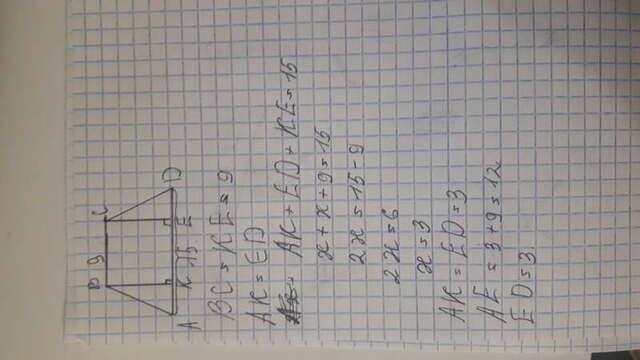 B 9 C
A K 15 E D
BC = KE = 9
AK = ED
AK + ED + KE = 15
x + x + 9 = 15
2x = 15 - 9
2x = 6
x = 3
AK = ED = 3
AE = 3 + 9 = 12
ED = 3